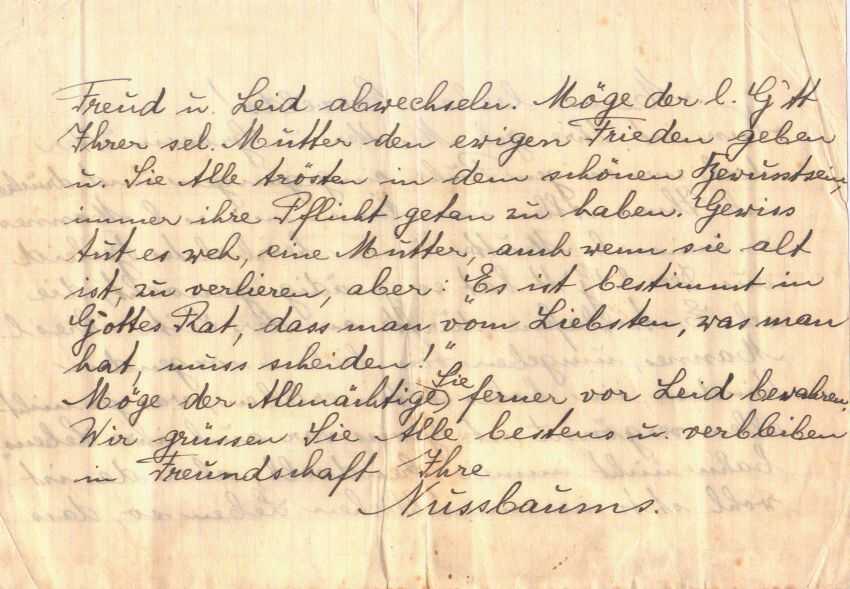 Freud u. Leid abwechseln. Möge der l. Gott
Ihrer sel. Mutter den ewigen Frieden geben
u. Sie Alle trösten in dem schönen Bewusstsein,
immer ihre Pflicht getan zu haben. Gewiss
tut es weh, eine Mutter, auch wenn sie alt
ist, zu verlieren, aber: "Es ist bestimmt in
Gottes Rat, dass man vom Liebsten, was man
hat, muss scheiden!"
Möge der Allmächtige Sie ferner vor Leid bewahren.
Wir grüssen Sie Alle bestens u. verbleiben
in Freundschaft Ihre
Nussbaums.